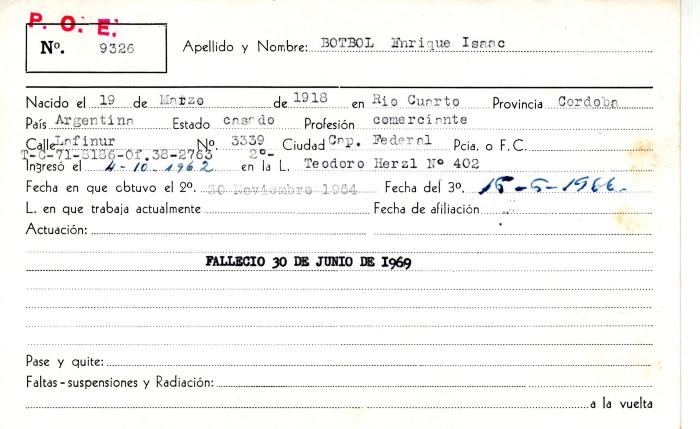 P. O. E.
Nº. 9326
Apellido y Nombre: BOTBOL Enrique Isaac
Nacido el 19 de Marzo de 1918 en Rio Cuarto Provincia Cordoba
País Argentina Estado casado Profesión comerciante
Calle Lafinur Nº. 3339 Ciudad Cap. Federal Pcia. o F.C.
T-C-71-8186-Of.38-2763 2º-
Ingresó el 4-10-1962 en la L. Teodoro Herzl Nº 402
Fecha en que obtuvo el 2º. 30 Noviembre 1964 Fecha del 3º. 15-6-1966.
L. en que trabaja actualmente Fecha de afiliación
Actuación:
FALLECIO 30 DE JUNIO DE 1969
Pase y quite:
Faltas-suspensiones y Radiación:
a la vuelta